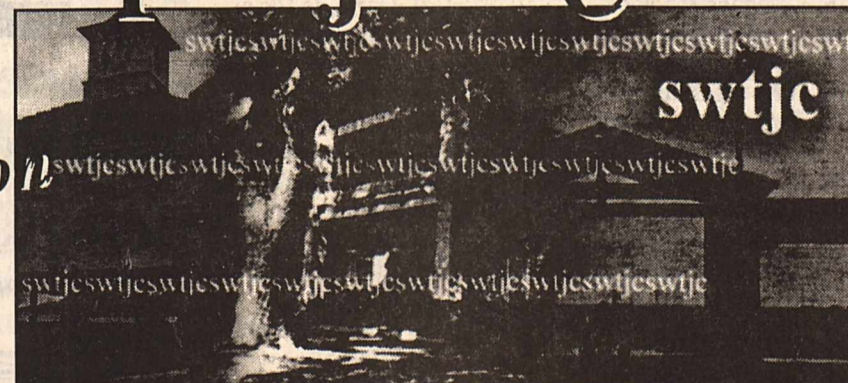 swtjcswtjcswtjcswtjcswtjcswtjcswtjcswtjcswtjcswtjcswt
swtjc
swtjcswtjcswtjcswtjcswtjcswtjcswtjcswtjcswtjcswtjcswtjc
swtjcswtjcswtjcswtjcswtjcswtjcswtjcswtjcswtjcswtjcswtjc